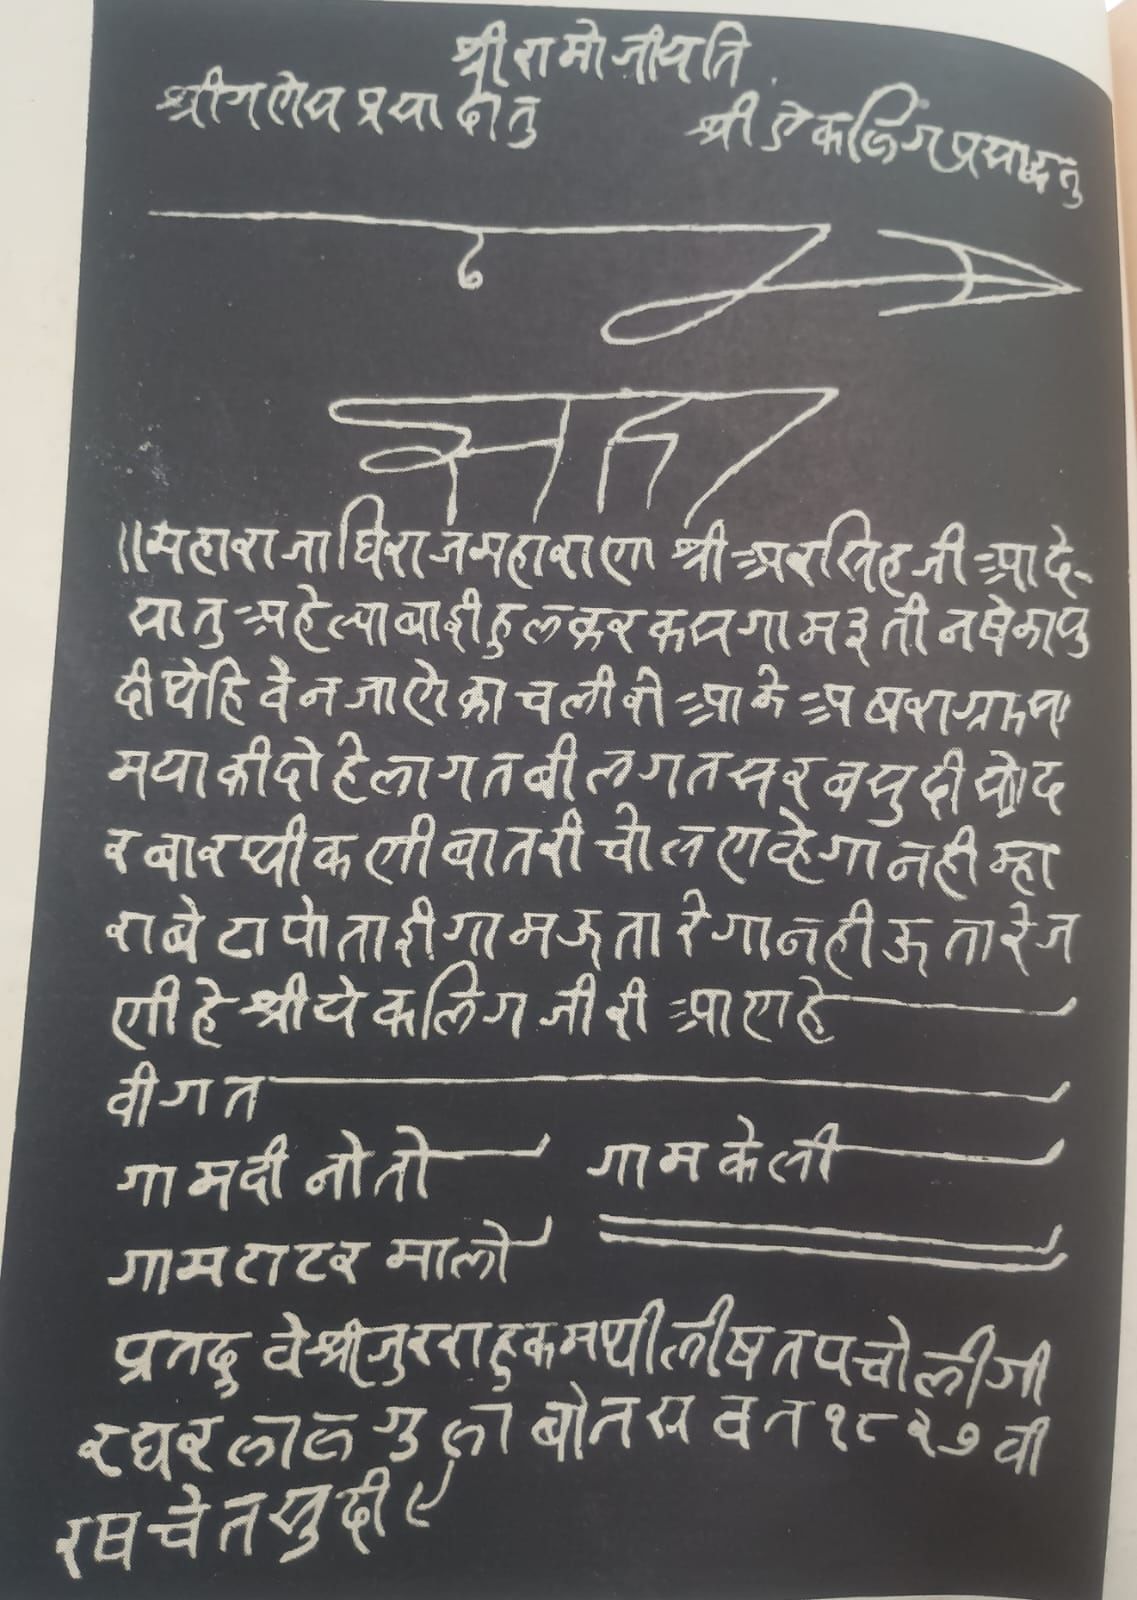 श्रीरामो जीयति
श्रीगणेस प्रसादातु
श्री ऐकलिंग प्रसादातु
सही
॥महाराजाधिराज महाराणा श्री अरसिहजी आदे-
सातु अहेल्याबाई हुलकर कस गाम ३ तीन षेका पु
दीधो हि वे न जाऐ का चली को आ के अ षरा ग्राम प
मया की दो हे लागत बीलगत सर ब सु दी यो द
रबार थी कणी बातरी चोलण व्हेगा नही म्हा
रा बेटा पोता ई गाम ऊतारेगा नही ऊतारे ज
णी हे श्री ये कलिग जी री आण हे
वीगत
गाम दीनोतो
गाम केली
गाम टाटरमालो
प्रत दुवे श्रीजुररा हुकमथी लीषत पचोली गी
रधरलाल गुलाबोत सवत १८२७ वी
रष चेत सुदी ९